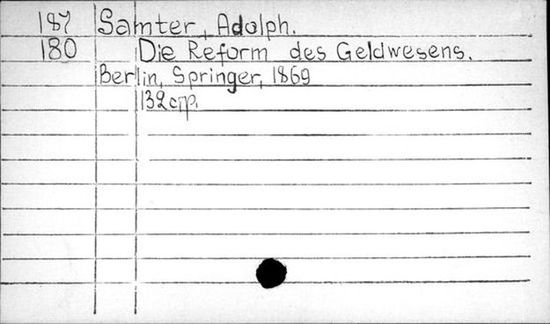 187 Samter, Adolph.
180 Die Reform des Geldwesens.
Berlin, Springer, 1869
132 стр.